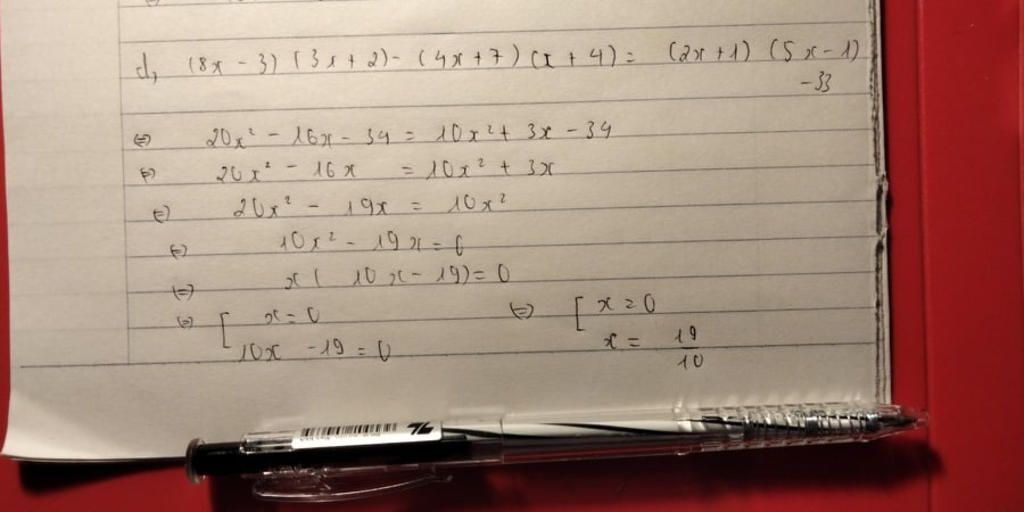 d, (8x - 3) (3x + 2) - (4x + 7) (x + 4) = (2x + 1) (5x - 1)
- 33
⇔ 20x² - 16x - 34 = 10x² + 3x - 34
⇔ 20x² - 16x = 10x² + 3x
⇔ 20x² - 19x = 10x²
⇔ 10x² - 19x = 0
⇔ x ( 10x - 19) = 0
⇔ [ x = 0 ⇔ [ x = 0
10x - 19 = 0 x = 19/10